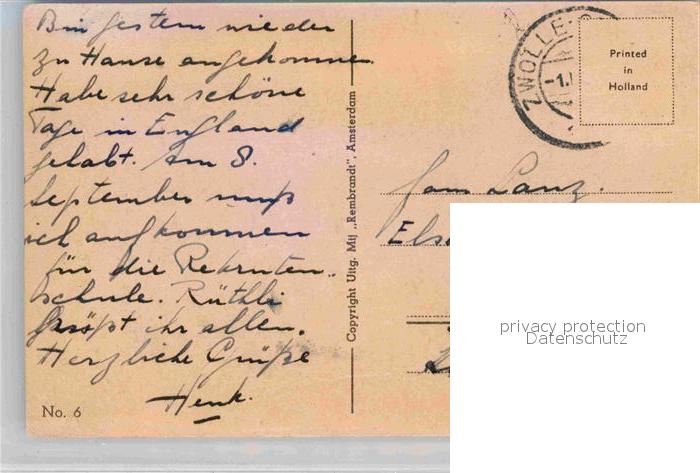 Bin gestern wieder
zu Hause angekommen.
Habe sehr schöne
Tage in England
gehabt. Am 8.
September muß
ich aufkommen
für die Rekruten-
schule. Rüthli
grüßt ihr allen.
Herzliche Grüße
Henk.
No. 6
Copyright Uitg. Mij „Rembrandt", Amsterdam
ZWOLLE
-1.
Printed
in
Holland
Fam. Lanz.
privacy protection
Datenschutz